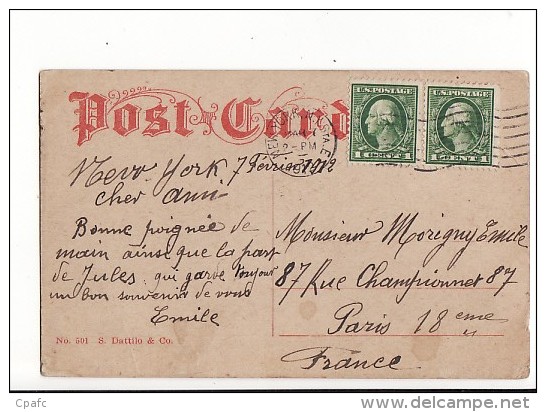 Post Card
U.S.POSTAGE
U.S.POSTAGE
1 CENT 1
1 CENT 1
STA. E
2-PM
New York 7 Février 1912
cher ami
Bonne poignée de
main ainsi que la part
de Jules qui garde toujour
un bon souvenir de vous
Emile
Monsieur Morigny Emile
87 Rue Championnet 87
Paris 18 eme
France
No. 501 S. Dattilo & Co.
Cpafc
www.delcampe.net